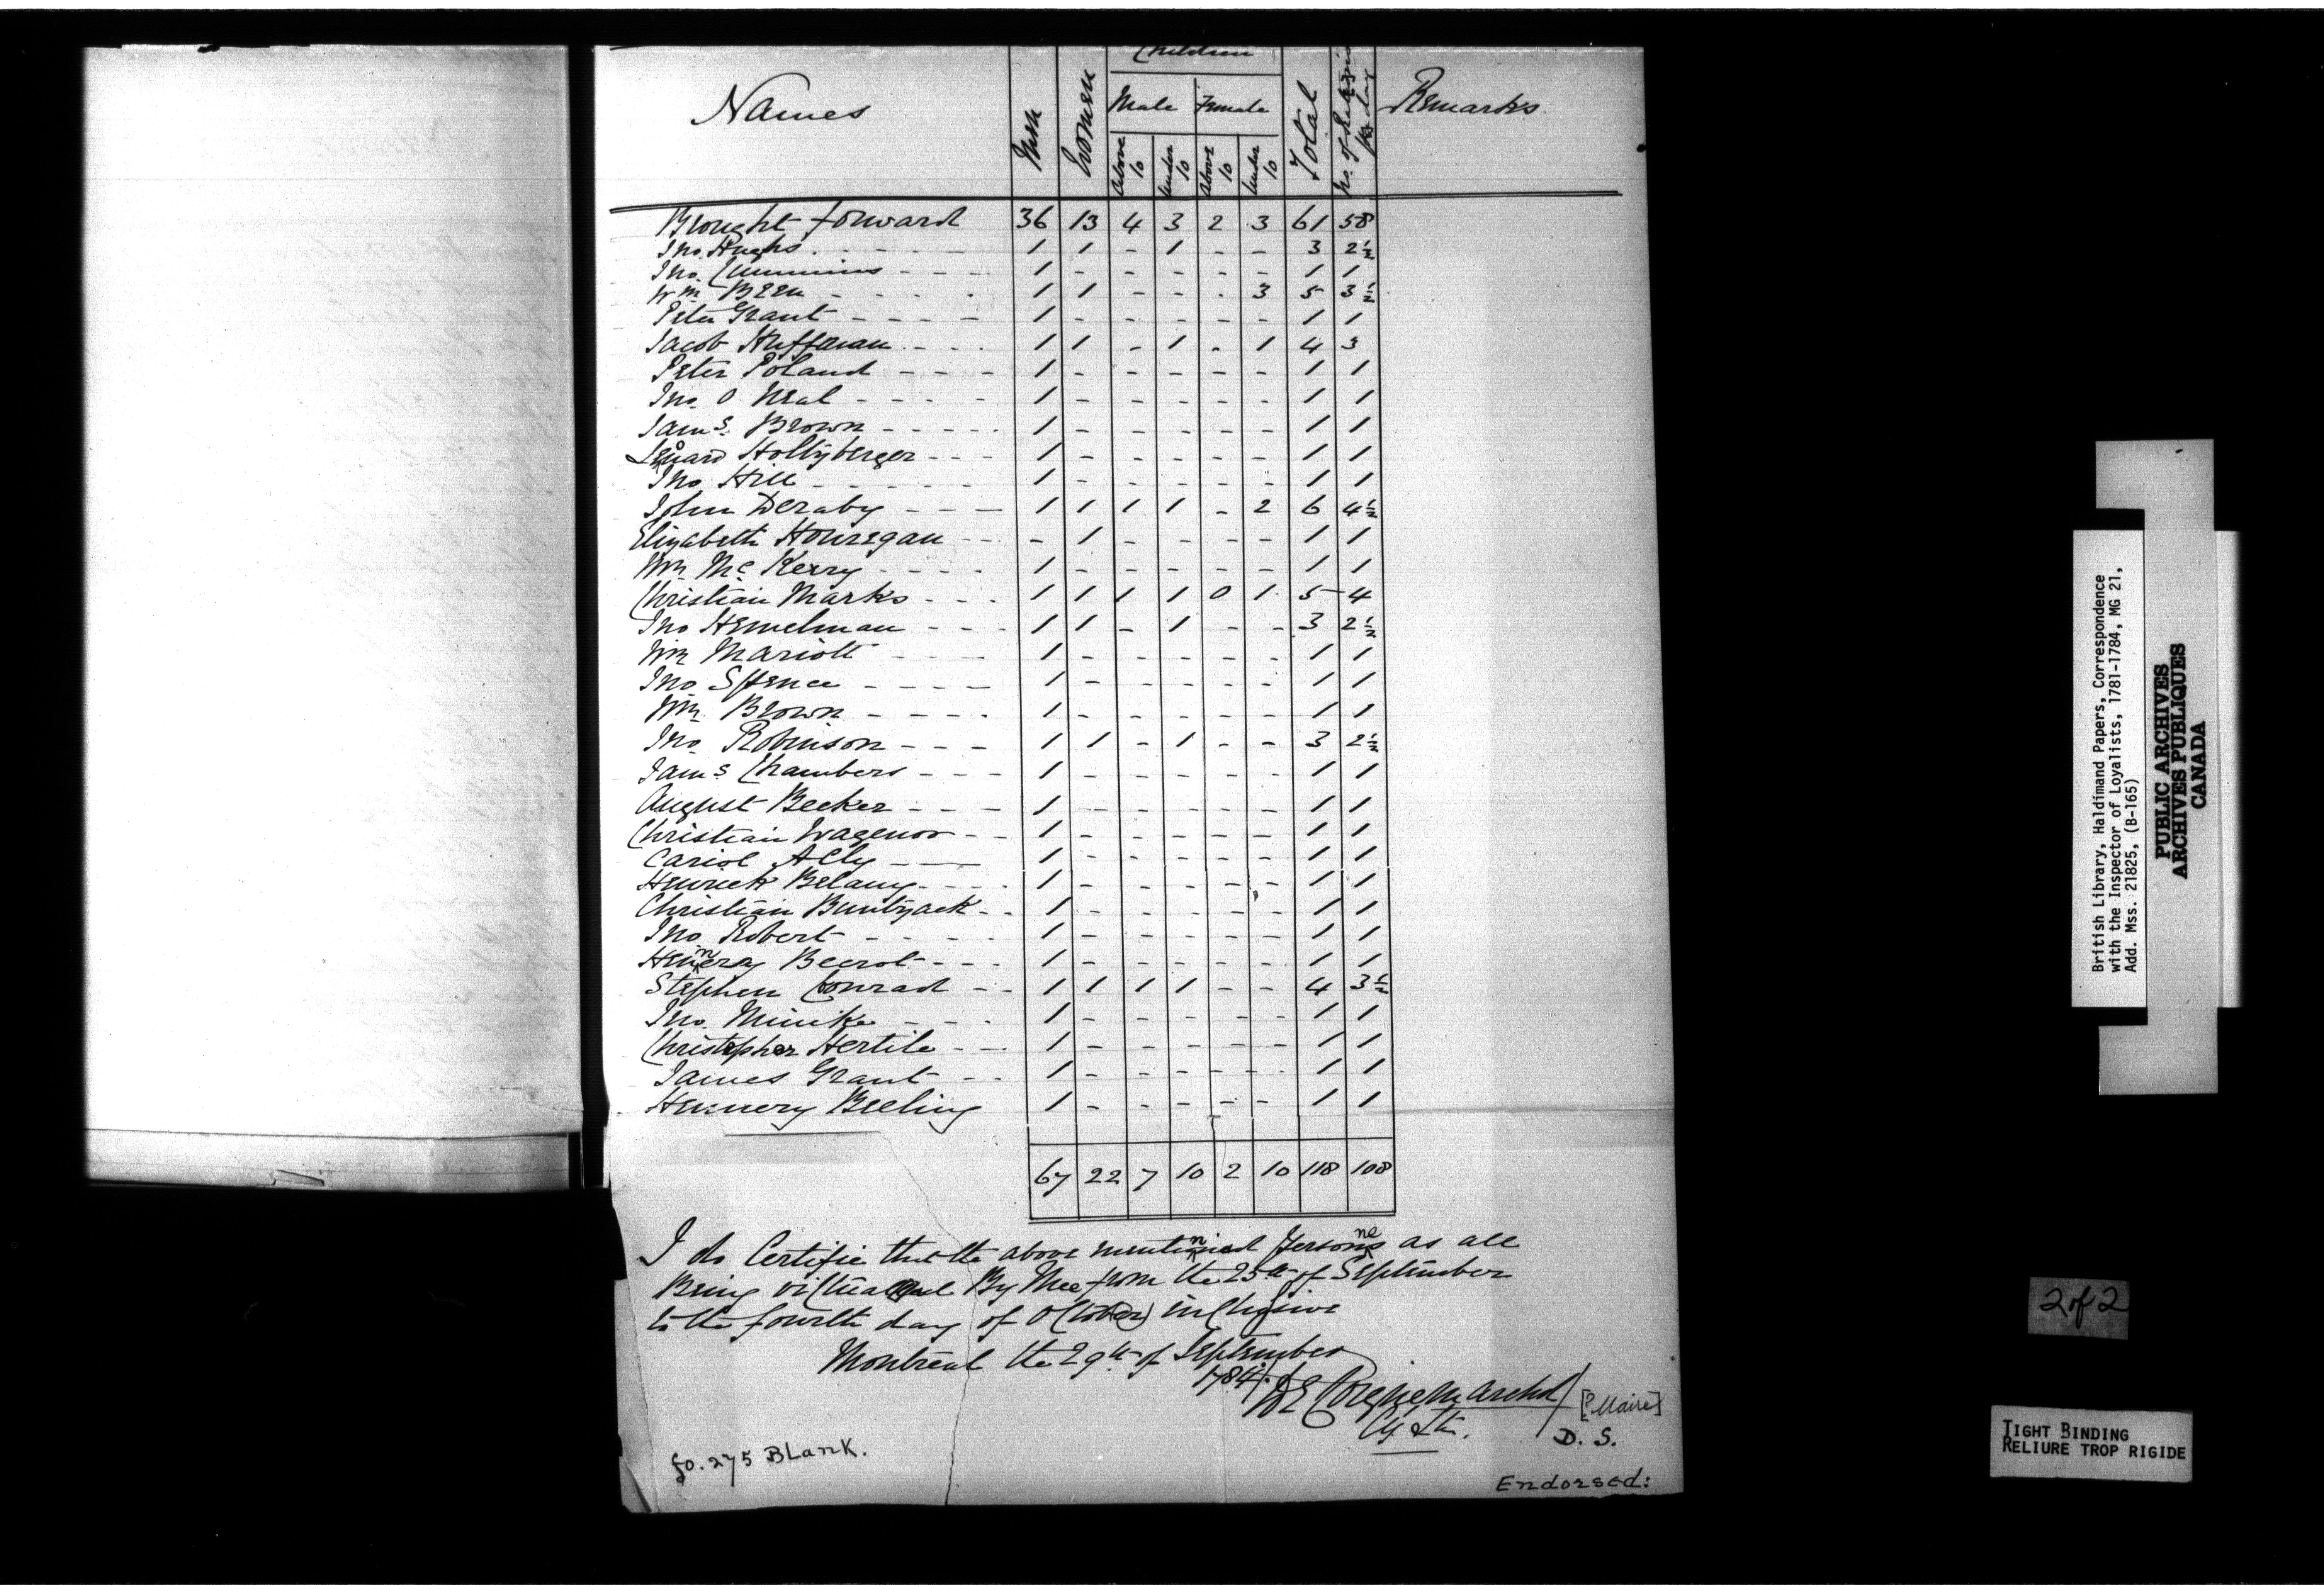 Children
Names Men Women Male Female Total No. of Rations per day Remarks
Above 10 Under 10 Above 10 Under 10
Brought forward 36 13 4 3 2 3 61 58
Jno. Hughs. - - - - 1 1 - 1 - - 3 2½
Jno. Cummins - - - 1 - - - - - 1 1
Wm Been - - - - 1 1 - - - 3 5 3½
Peter Grant - - - - 1 - - - - - 1 1
Jacob Huffman - - - 1 1 - 1 - 1 4 3
Peter Poland - - - - 1 - - - - - 1 1
Jno. O Neal - - - - 1 - - - - - 1 1
Jams. Brown - - - - - 1 - - - - - 1 1
Lenard Hollyberger - - - 1 - - - - - 1 1
Jno. Hill - - - - - 1 - - - - - 1 1
John Deraby - - - 1 1 1 1 - 2 6 4½
Elizabeth Houregan - - - - 1 - - - - 1 1
Wm Mc Kerry - - - - 1 - - - - - 1 1
Christian Marks - - - 1 1 1 1 0 1 5 4
Jno Hemelman - - - 1 1 - 1 - - 3 2½
Wm Mariott - - - - 1 - - - - - 1 1
Jno Spence - - - - 1 - - - - - 1 1
Wm. Brown - - - - 1 - - - - - 1 1
Jno. Robinson - - - 1 1 - 1 - - 3 2½
Jams Chambers - - - 1 - - - - - 1 1
August Becker - - - 1 - - - - - 1 1
Christian Wagenor - - 1 - - - - - 1 1
Cariol Ally - - - 1 - - - - - 1 1
Henrick Belany - - - - 1 - - - - - 1 1
Christian Buntzack - - 1 - - - - - 1 1
Jno. Robert - - - - 1 - - - - - 1 1
Hennery Beerot - - - 1 - - - - - 1 1
Stephen Conrad - - 1 1 1 1 - - 4 3½
Jno. Minike - - - 1 - - - - - 1 1
Christopher Hertile - - 1 - - - - - 1 1
James Grant - - 1 - - - - - 1 1
Hennery Beeling 1 - - - - - 1 1
67 22 7 10 2 10 118 108
I do Certifie that the above mentionned Persons as all
Being victualed By Mee from the 25th of September
to the fourth day of October inclusive
Montreal the 29th of September
1784.
DE Coigne marchd [? Maire]
D. S.
fo. 275 Blank.
Endorsed:
British Library, Haldimand Papers, Correspondence
with the Inspector of Loyalists, 1781-1784, MG 21,
Add. Mss. 21825, (B-165)
PUBLIC ARCHIVES
ARCHIVES PUBLIQUES
CANADA
2 of 2
TIGHT BINDING
RELIURE TROP RIGIDE